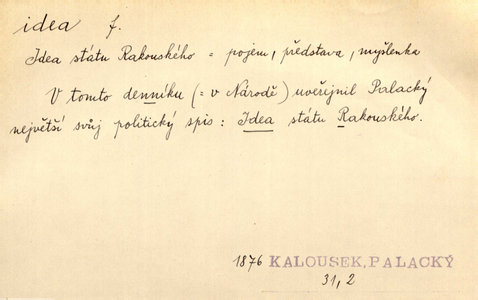 idea f.
Idea státu Rakouského = pojem, představa, myšlenka
V tomto denníku (= v Národě) uveřejnil Palacký
největší svůj politický spis: Idea státu Rakouského.
1876 KALOUSEK, PALACKÝ
31, 2